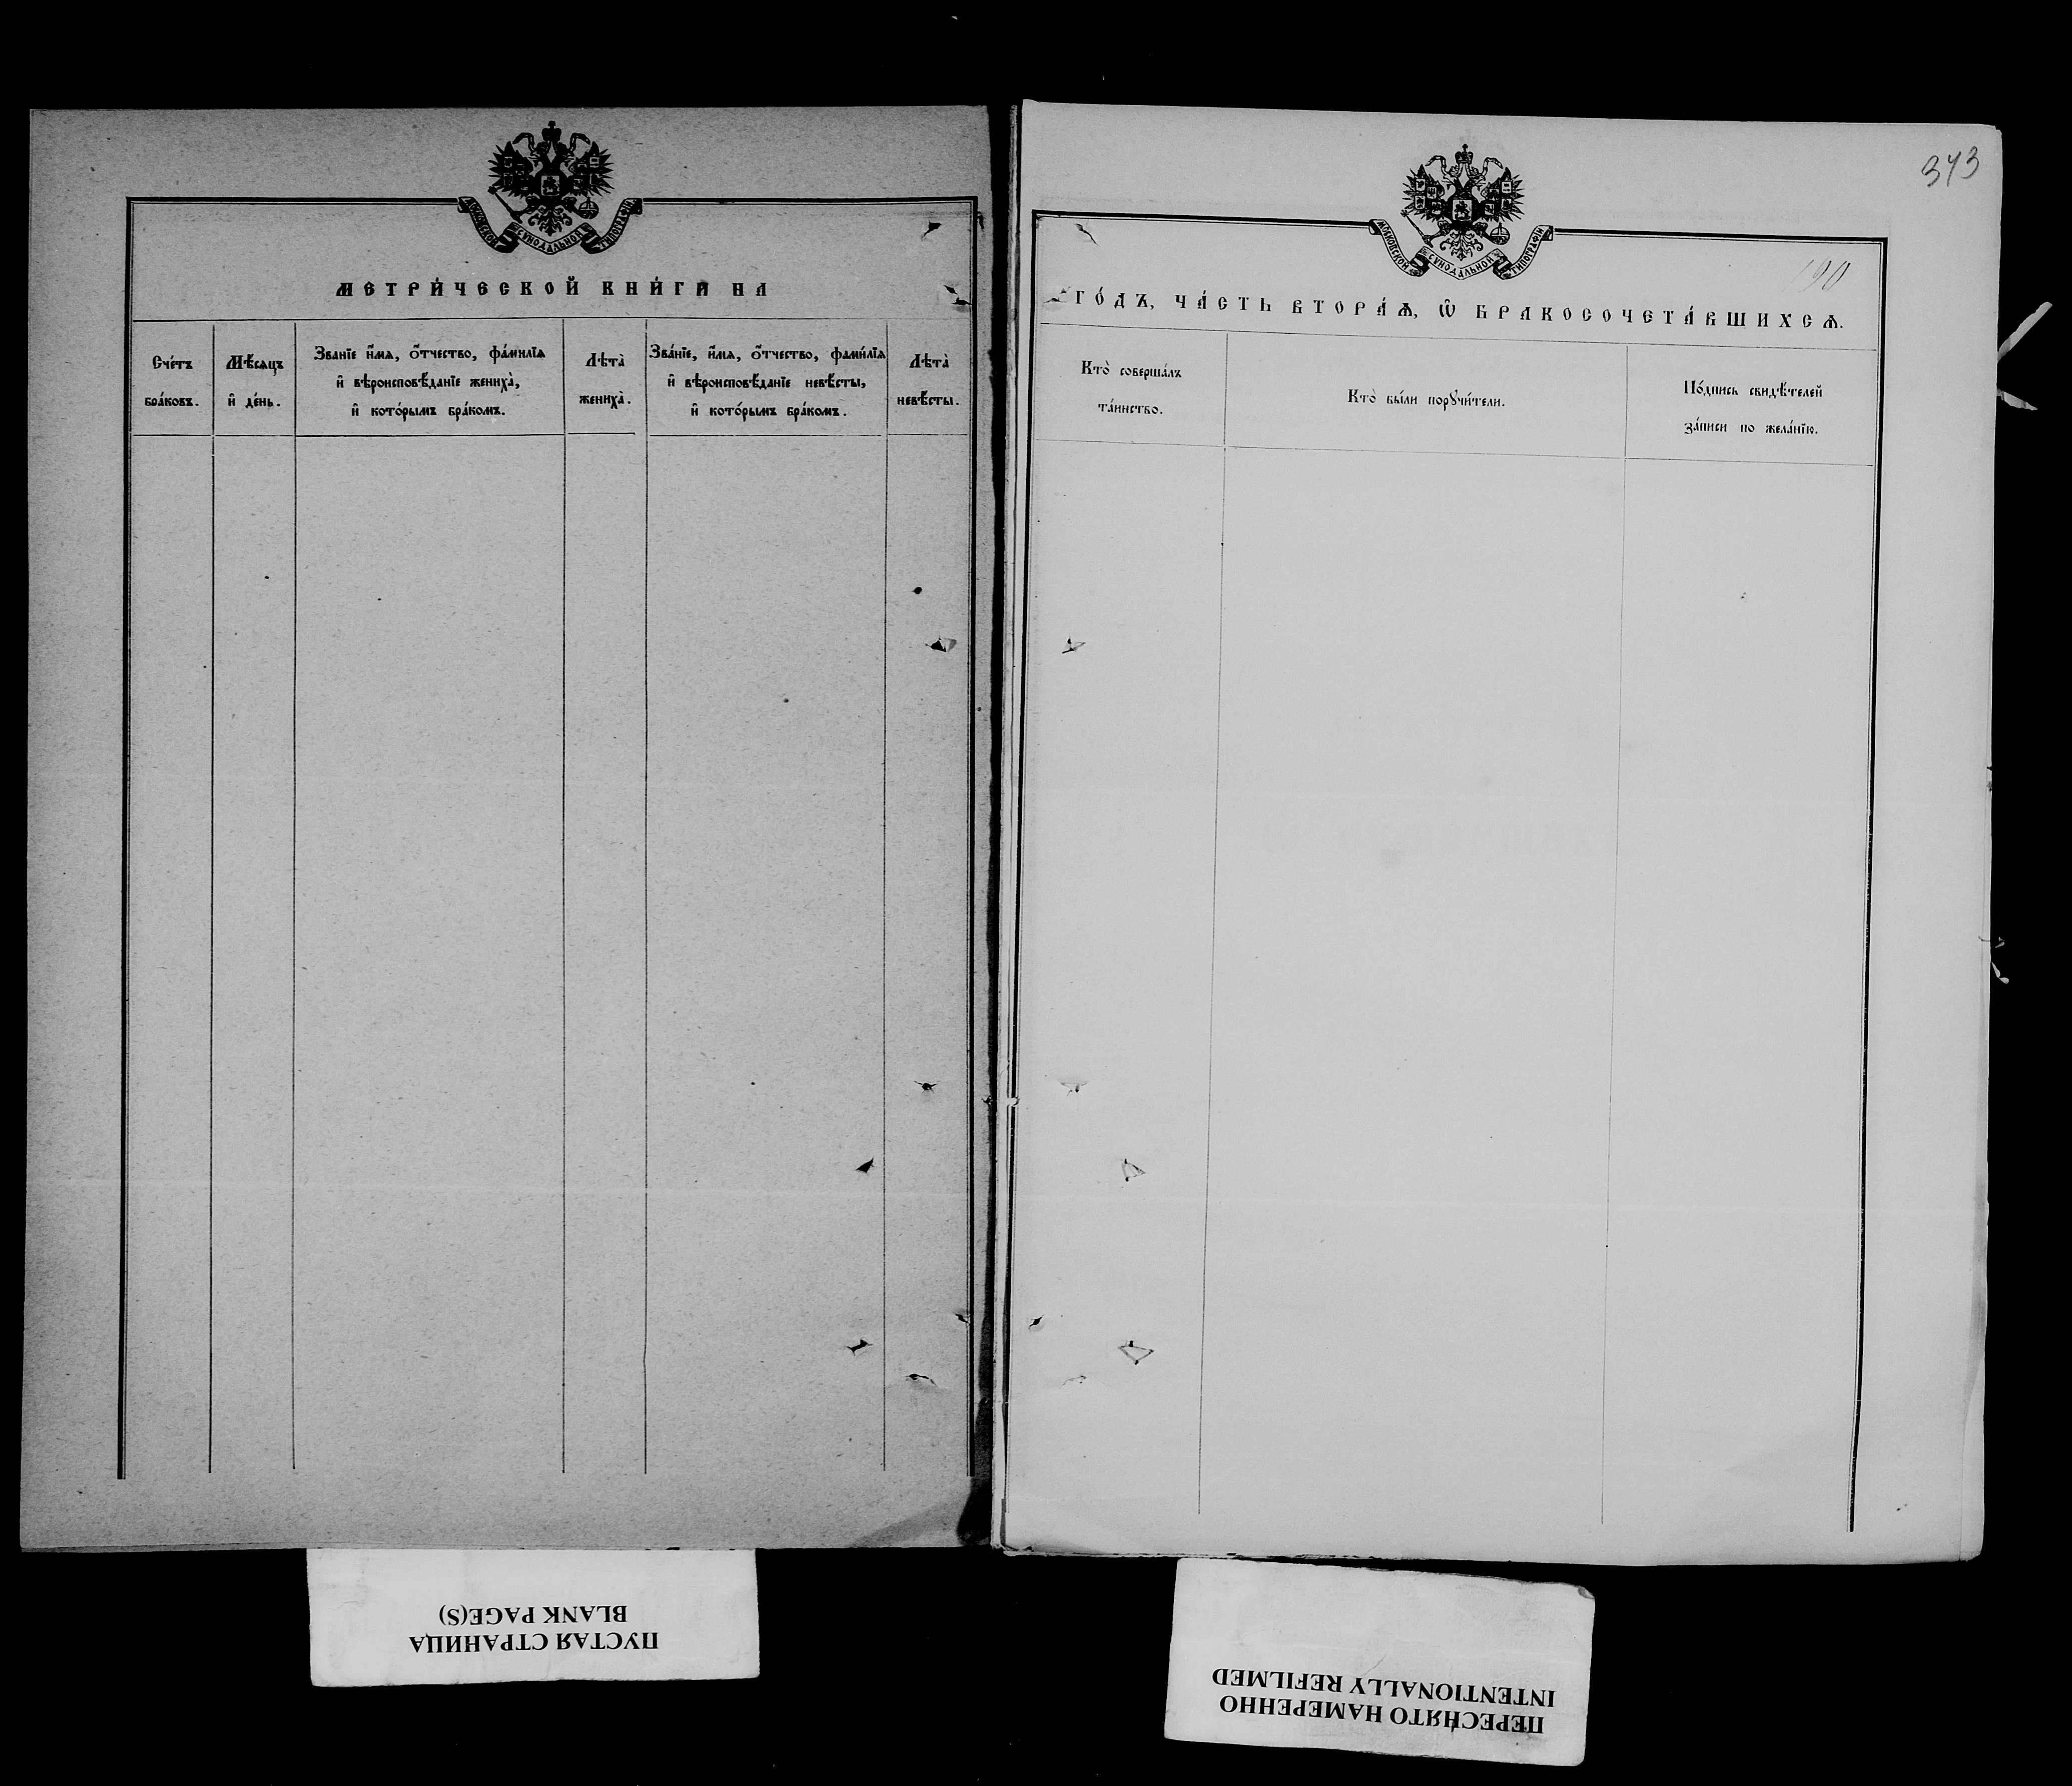 МОСКОВСКОЙ СѴНОДАЛЬНОЙ ТИПОГРАФІИ
МЕТРИ́ЧЕСКОЙ КНИ́ГИ НА
Сче́тъ
бра́ковъ.
Мѣ́сяцъ
и҆ де́нь.
Зва́нїе и҆́мѧ, ѻ҆́тчество, фами́лїѧ
и҆ вѣроисповѣ́данїе жениха̀,
и҆ кото́рымъ бра́комъ.
Лѣта̀
жениха̀.
Зва́нїе, и҆́мѧ, ѻ҆́тчество, фами́лїѧ
и҆ вѣроисповѣ́данїе невѣ́сты,
и҆ кото́рымъ бра́комъ.
Лѣта̀
невѣ́сты.
ПУСТАЯ СТРАНИЦА
BLANK PAGE(S)
343
МОСКОВСКОЙ СѴНОДАЛЬНОЙ ТИПОГРАФІИ
190
ГО́ДЪ, ЧА́СТЬ ВТОРА́Ѧ, Ѽ БРАКОСОЧЕТА́ВШИХСѦ.
Кто̀ соверша́лъ
та́инство.
Кто̀ бы́ли порꙋчи́тели.
По́дпись свидѣ́телей
за́писи по жела́нїю.
ПЕРЕСНЯТО НАМЕРЕННО
INTENTIONALLY REFILMED